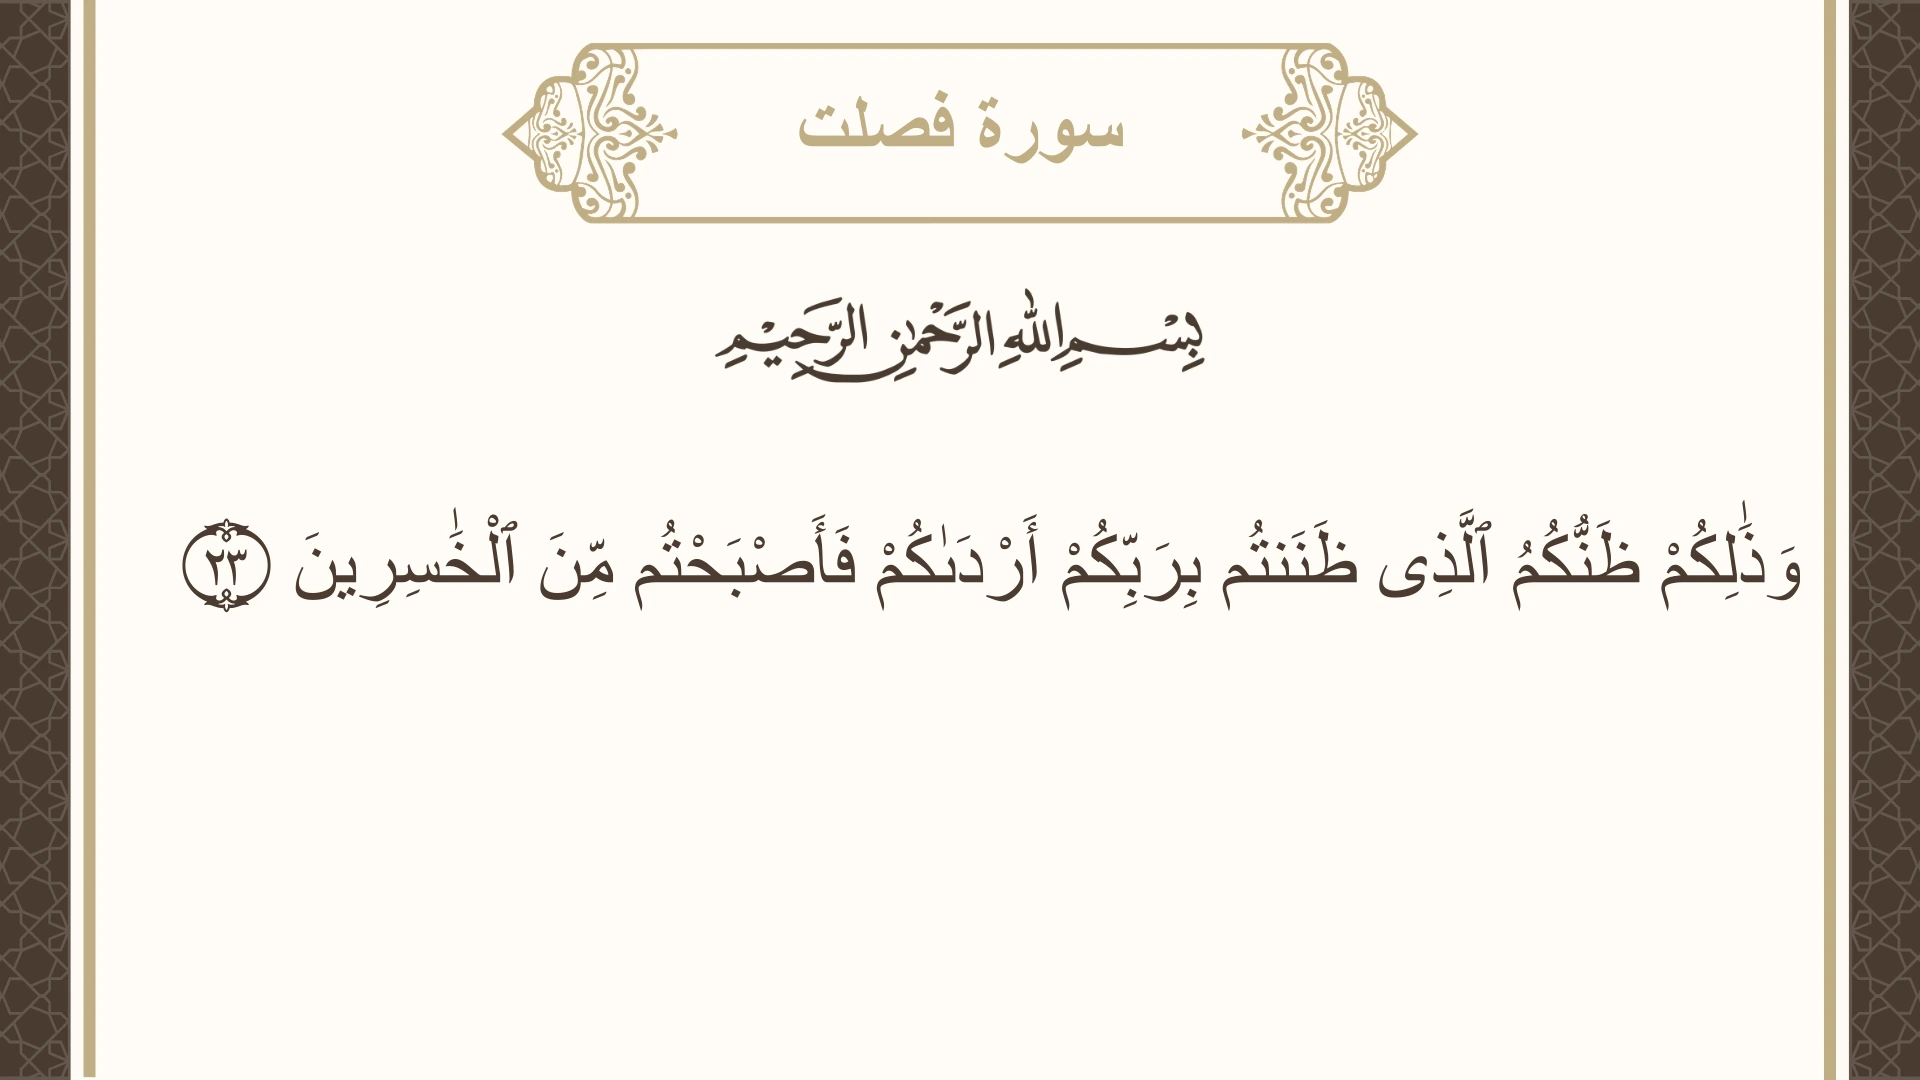 سورة فصلت
بِسْمِ اللهِ الرَّحْمٰنِ الرَّحِيْمِ
وَذَٰلِكُمْ ظَنُّكُمُ ٱلَّذِى ظَنَنتُم بِرَبِّكُمْ أَرْدَىٰكُمْ فَأَصْبَحْتُم مِّنَ ٱلْخَٰسِرِينَ ٢٣